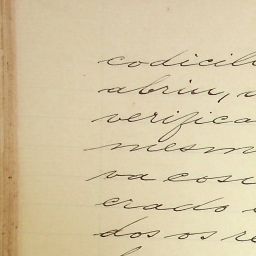 codicil
abriu, 
verifica
mesm
va cosi
crado
dos os re